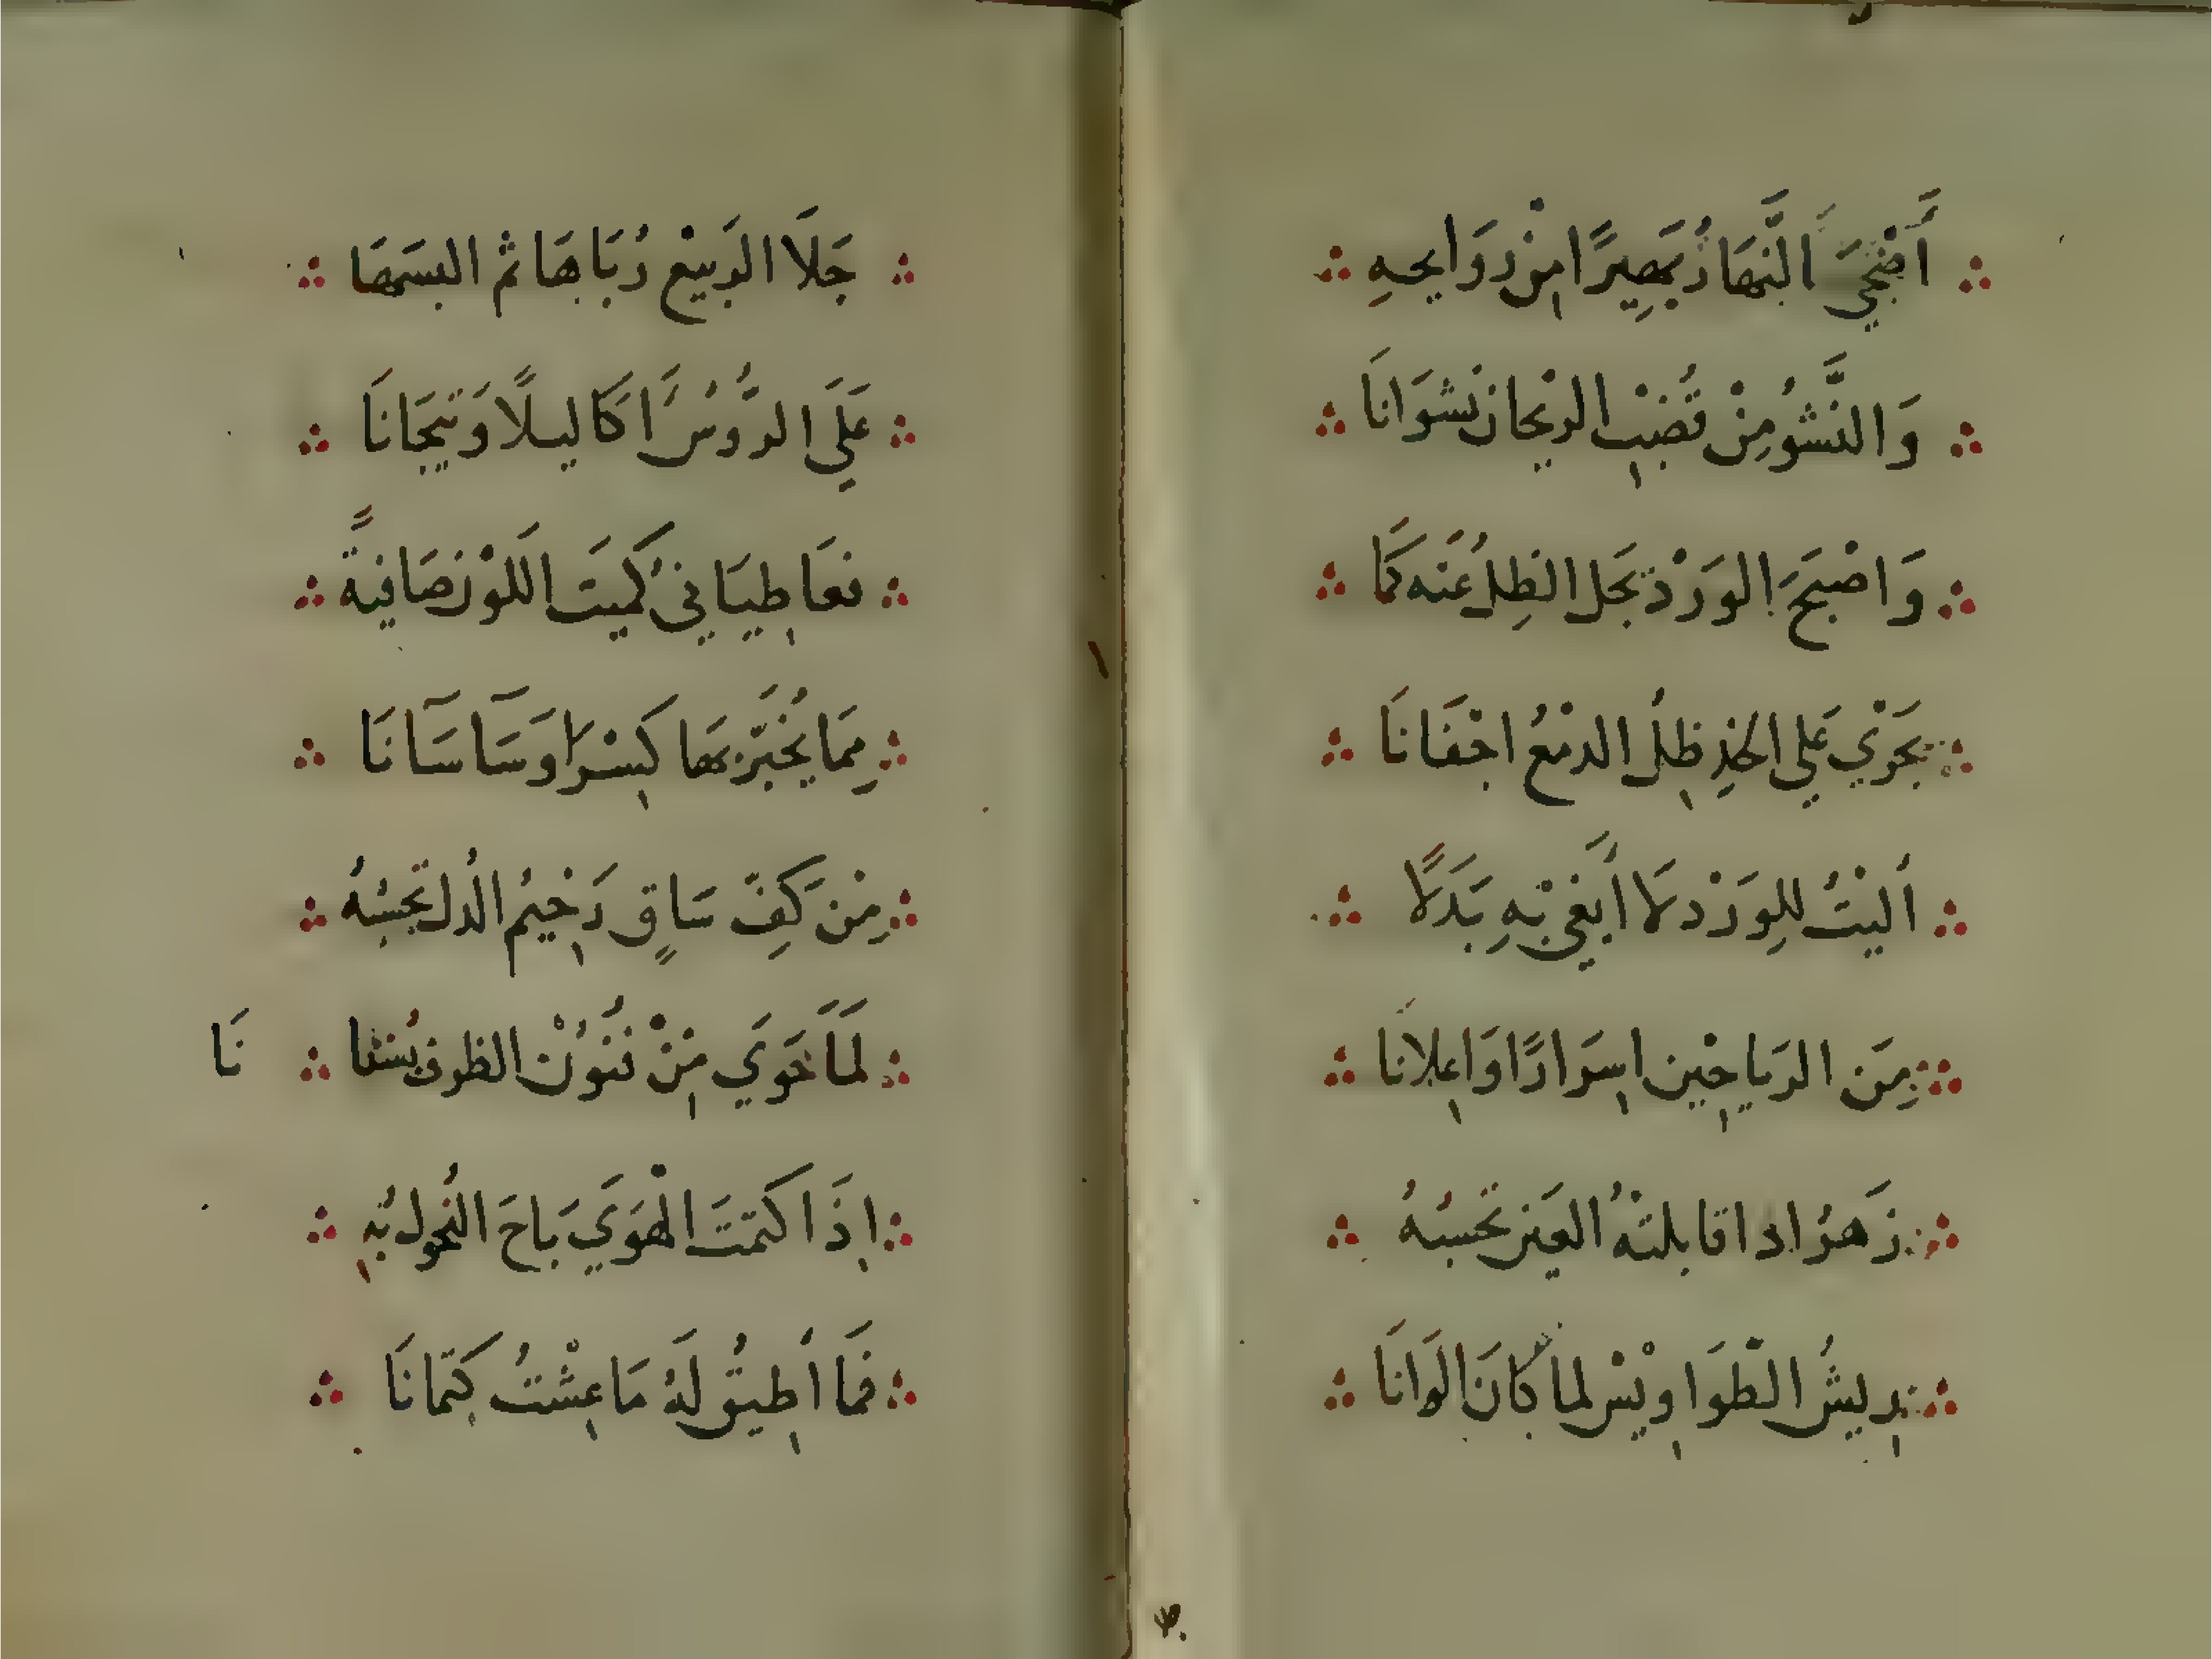 أَضْحَى النَّهَارُ بَصِيرًا مِنْ رَوَايحِهِ
وَالنَّشْوُ مِنْ قُضُبِ الرِيْحَانِ نَشوَانَا
وَاصْبَحَ الوَرْدُ بَجل الظِلُ عَنه كَمَا
يَجَرْي عَلي الخَدِ ظِلُ الدمْعُ اجْفَانَا
اَليْتُ لِلوَرْد لَا أَبغي بِهِ بَدَلًا
مِنَ الرَيَاحِين اسِرَارًا وَاعِلَانا
زَهرُ اذا قابلتهُ العَين تَحسبُهُ
رِيشُ الطَّوَاوِيْسْ لما كَانَ الوَانَا
جَلَا الرَبيْع رُبَاهَا ثم البسَهَا
عَلَى الرُؤسُ أَكَاليلًا وَتيجَانَا
فعَاطِيَانيْ كُميتَ اللَوْن صَافيةً
مِمَا يُخَبّر بهَا كِسْرَا وَسَاسَانَا
مِنْ كَفِّ سَاقٍ رَخِيمُ الدل تحَسبُهُ
لَمَا حَوَي مِنْ فنُوْن الظرف بُستا نَا
اِذَا كتمتَ الهْوَي بَاحَ النُحول بهِ
فَمَا أَطِيقُ لَهُ مَا عِشْتُ كِتمانَا